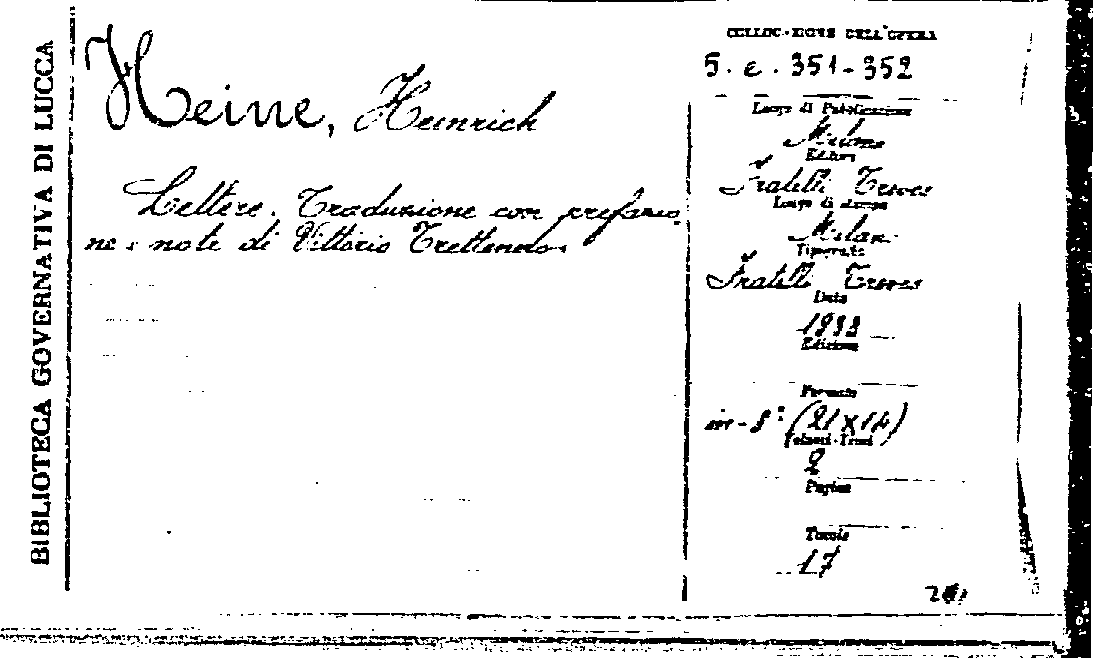 BIBLIOTECA GOVERNATIVA DI LUCCA
Heine, Heinrich
Lettere. Traduzione con prefazio-
ne e note di Vittorio Trettenero
COLLOCAZIONE DELL'OPERA
5. e. 351-352
Luogo di Pubblicazione
Milano
Editore
Fratelli Treves
Luogo di stampa
Milano
Tipografo
Fratelli Treves
Data
Edizione
Formato
in-8° (21x14)
Volumi-Tomi
2
Pagine
Tavole
17